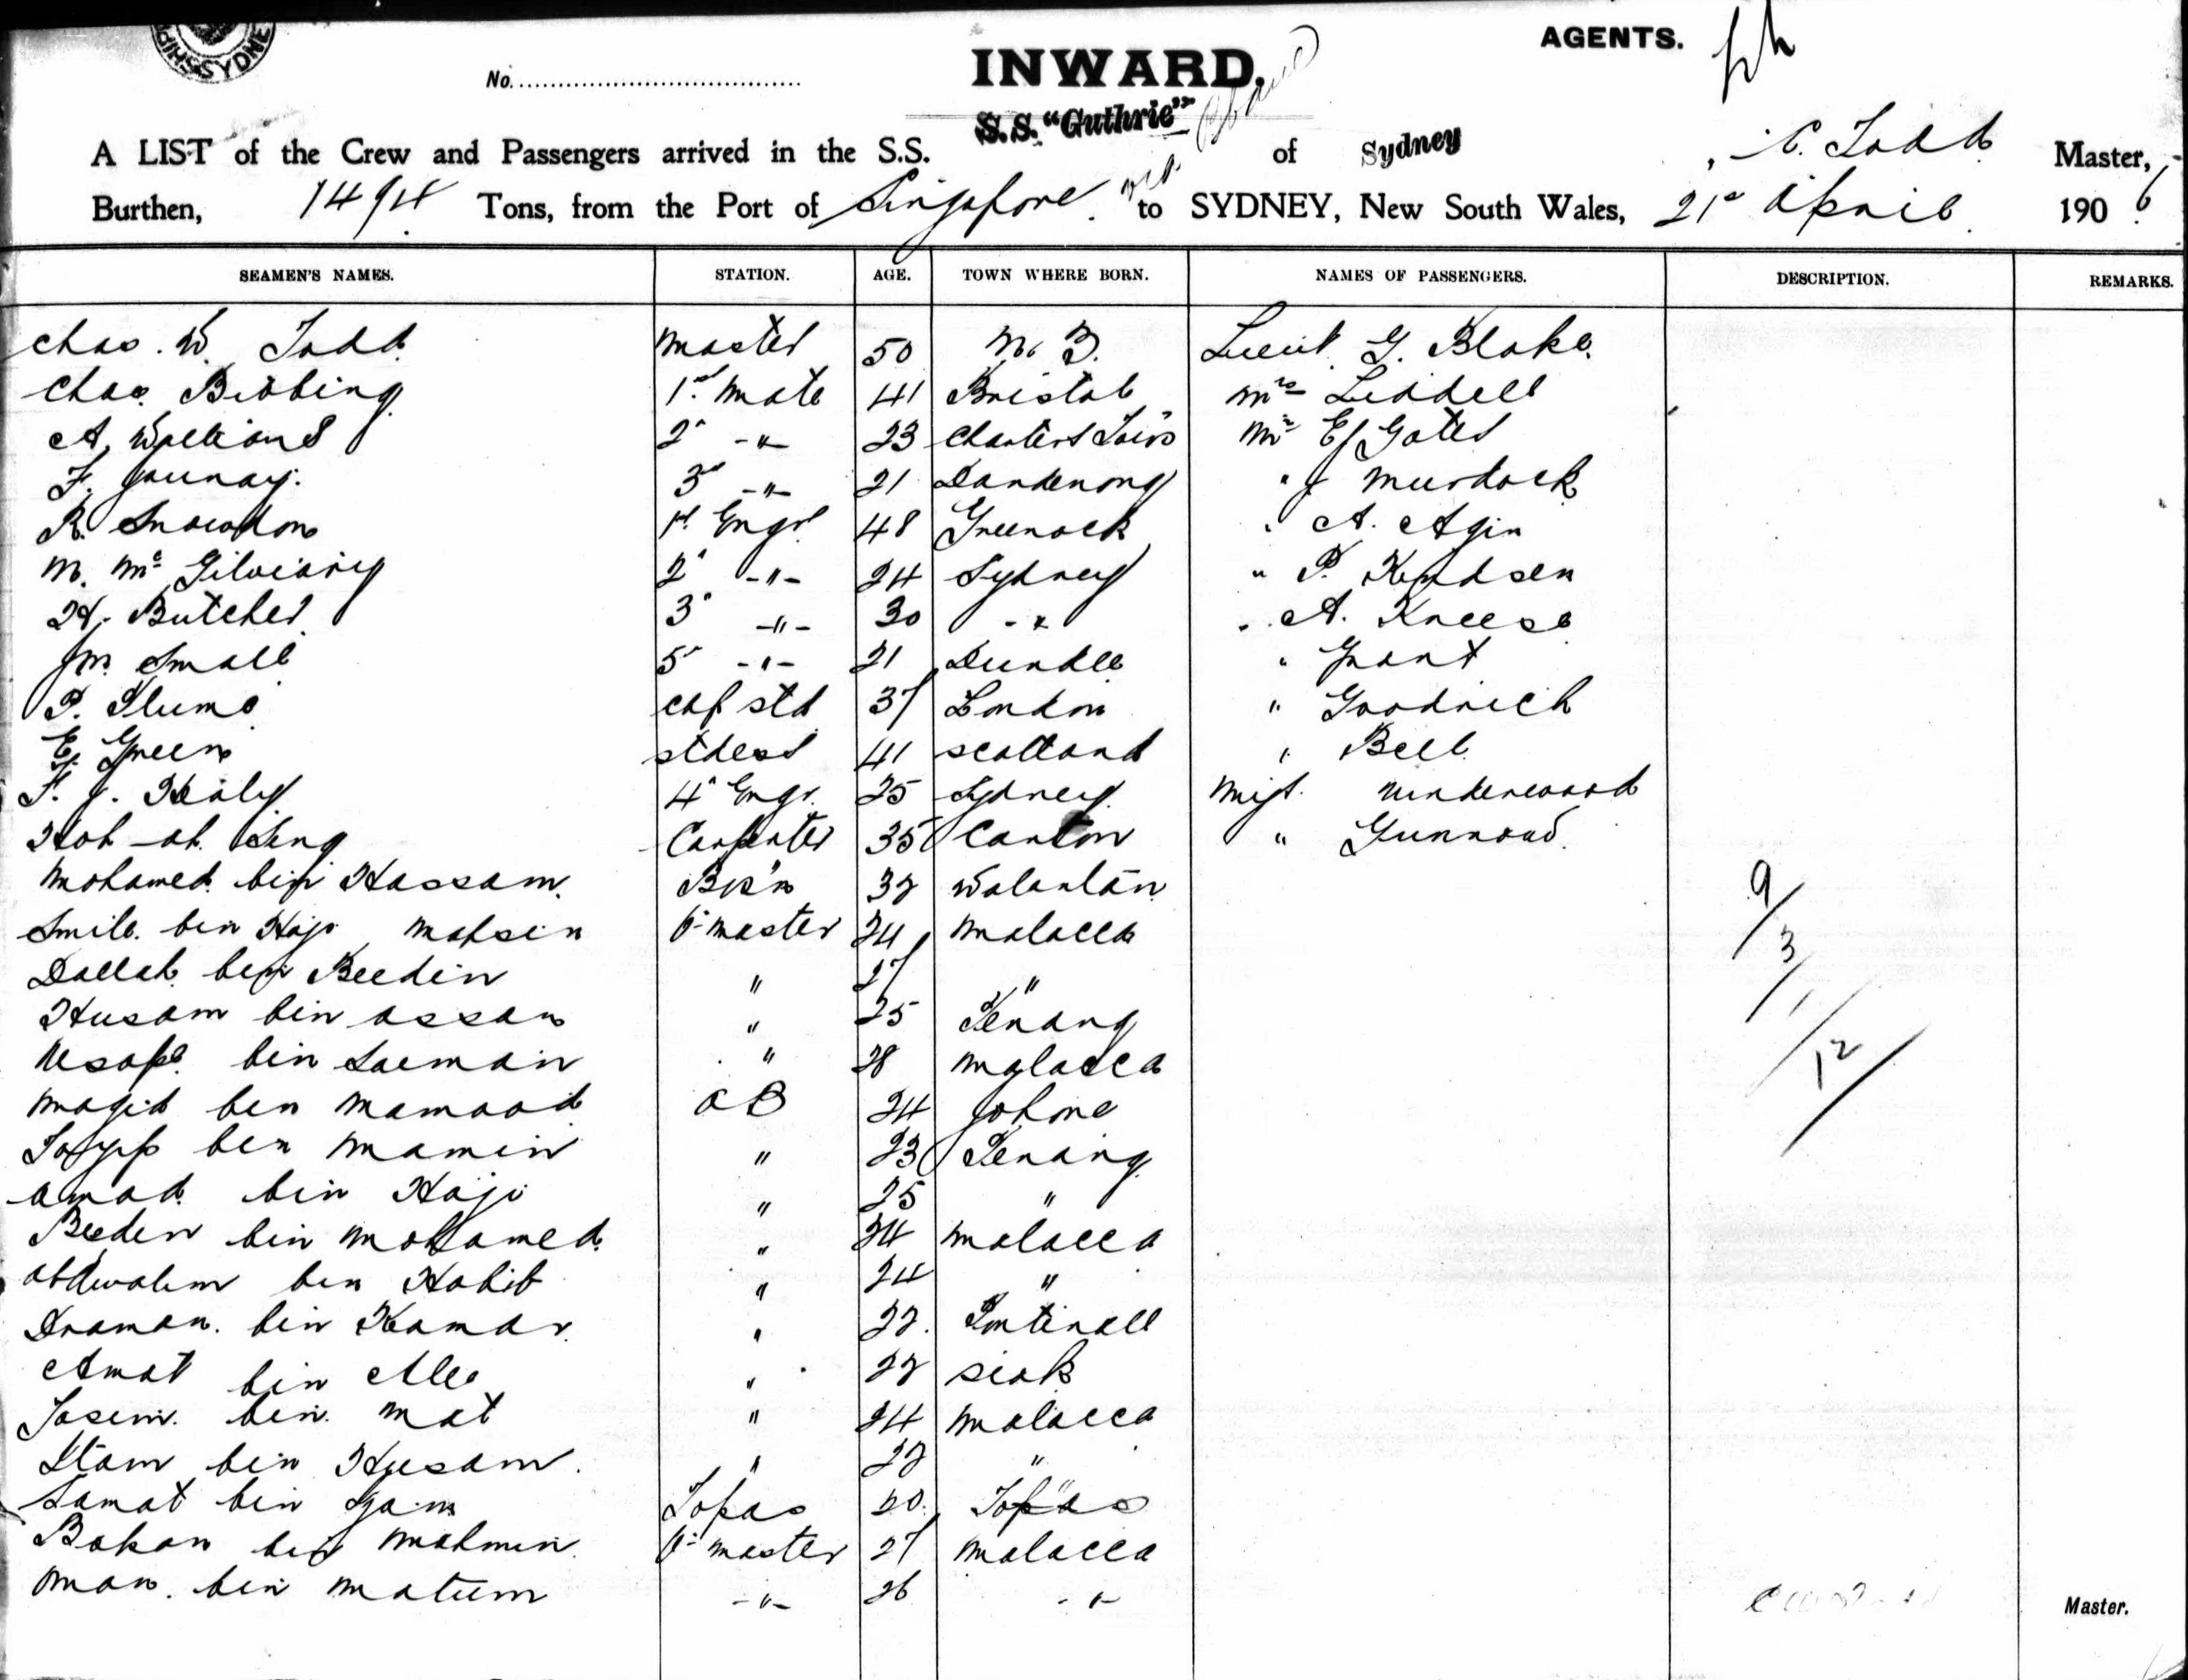 SHIPS SYDNE
AGENTS.
No.
INWARD.
S.S. "Guthrie"
A LIST of the Crew and Passengers arrived in the S.S. of Sydney C. Todd Master,
Burthen, 1494 Tons, from the Port of Singapore to SYDNEY, New South Wales, 21st April 1906
SEAMEN'S NAMES. STATION. AGE. TOWN WHERE BORN. NAMES OF PASSENGERS. DESCRIPTION. REMARKS.
Chas. W. Todd Master 50 N. Z. Lieut. G. Blake
Chas. Bibbing 1st Mate 41 Bristol Mrs Liddell
A. Williams 2d -"- 23 Charters Towers Mr E Gates
F. 3rd -"- 21 Dandenong " J Murdock
R. Snowdon 1st Engr 48 Greenock " A. Agin
M. Mc Gilvary 2d -"- 24 Sydney " P. Kundsen
H. Butcher 3d -"- 30 -"- " A. Kneese
Jm. Small 5 -"- 21 Dundee " Grant
P. Plume std 37 London " Goodrich
E. Green stdess 41 Scotland " Bell
F. J. Healy 4th Engr. 25 Sydney Underwood
Hoh Ah Sing Carpenter 35 Canton "
Mohamed bin Hassam 32 9
Smile bin Haji Mohsin master 24 Malacca 3
Dallah bin Beedin " 27 " 1
Husam bin Assan " 25 Penang
Usope bin Laeman " 28 Malacca 12
Magid ben Mamood AB 24 Johore
Tayip ben Mamin " 23 Penang
Amad bin Haji " 25 "
Beeden bin Mohamed " 24 Malacca
ben Habib " 24 "
Draman bin Kamar " 22
Amat bin Alee " 22 Siak
Jasem bin Mat " 24 Malacca
Etam bin Husam " 22 "
Samat bin Jam Topas 20 Topas "
Bakar bin Mahmin master 27 Malacca
Man bin Matum -"- 26 -"-
Master.